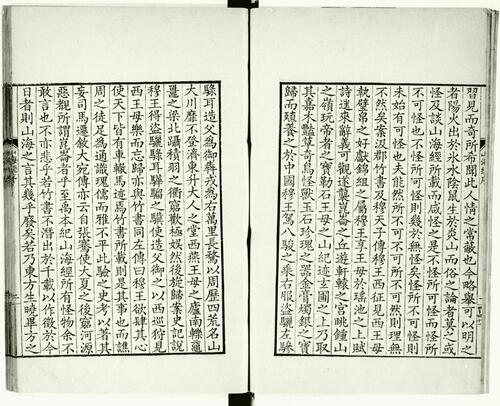 習見而奇所希聞此人情之常蔽也今略舉可以明之
者陽火出於冰水陰鼠生於炎山而俗之論者莫之或
怪及談山海經所載而咸怪之是不怪所可怪而怪所
不可怪也不怪所可怪則幾於無怪矣怪所不可怪則
未始有可怪也夫能然所不可不可所不可然則理無
不然矣案汲郡竹書及穆天子傳穆王西征見西王母
執璧帛之好獻錦組之屬穆王享王母於瑤池之上賦
詩往來辭義可觀遂襲崑崙之丘遊軒轅之宮眺鍾山
之嶺玩帝者之寶勒石王母之山紀迹玄圃之上乃取
其嘉木豔草奇鳥怪獸玉石珍瑰之器金膏燭銀之寶
歸而殖養之於中國穆王駕八駿之乘右服盜驪左驂
騄耳造父為御犇戎為右萬里長騖以周歷四荒名山
大川靡不登濟東升大人之堂西燕王母之廬南轢黿
鼉之梁北躡積羽之衢窮歡極娛然後旋歸案史記說
穆王得盜驪騄耳驊騮之驥使造父御之以西巡狩見
西王母樂而忘歸亦與竹書同左傳曰穆王欲肆其心
使天下皆有車轍馬迹焉竹書所載則是其事也而譙
周之徒足為通識瑰儒而雅不平此驗之史考以著其
妄司馬遷敘大宛傳亦云自張騫使大夏之後窮河源
惡覩所謂崑崙者乎至禹本紀山海經所有怪物余不
敢言也不亦悲乎若竹書不潛出於千載以作徵於今
日者則山海之言其幾乎廢矣若乃東方生曉畢方之